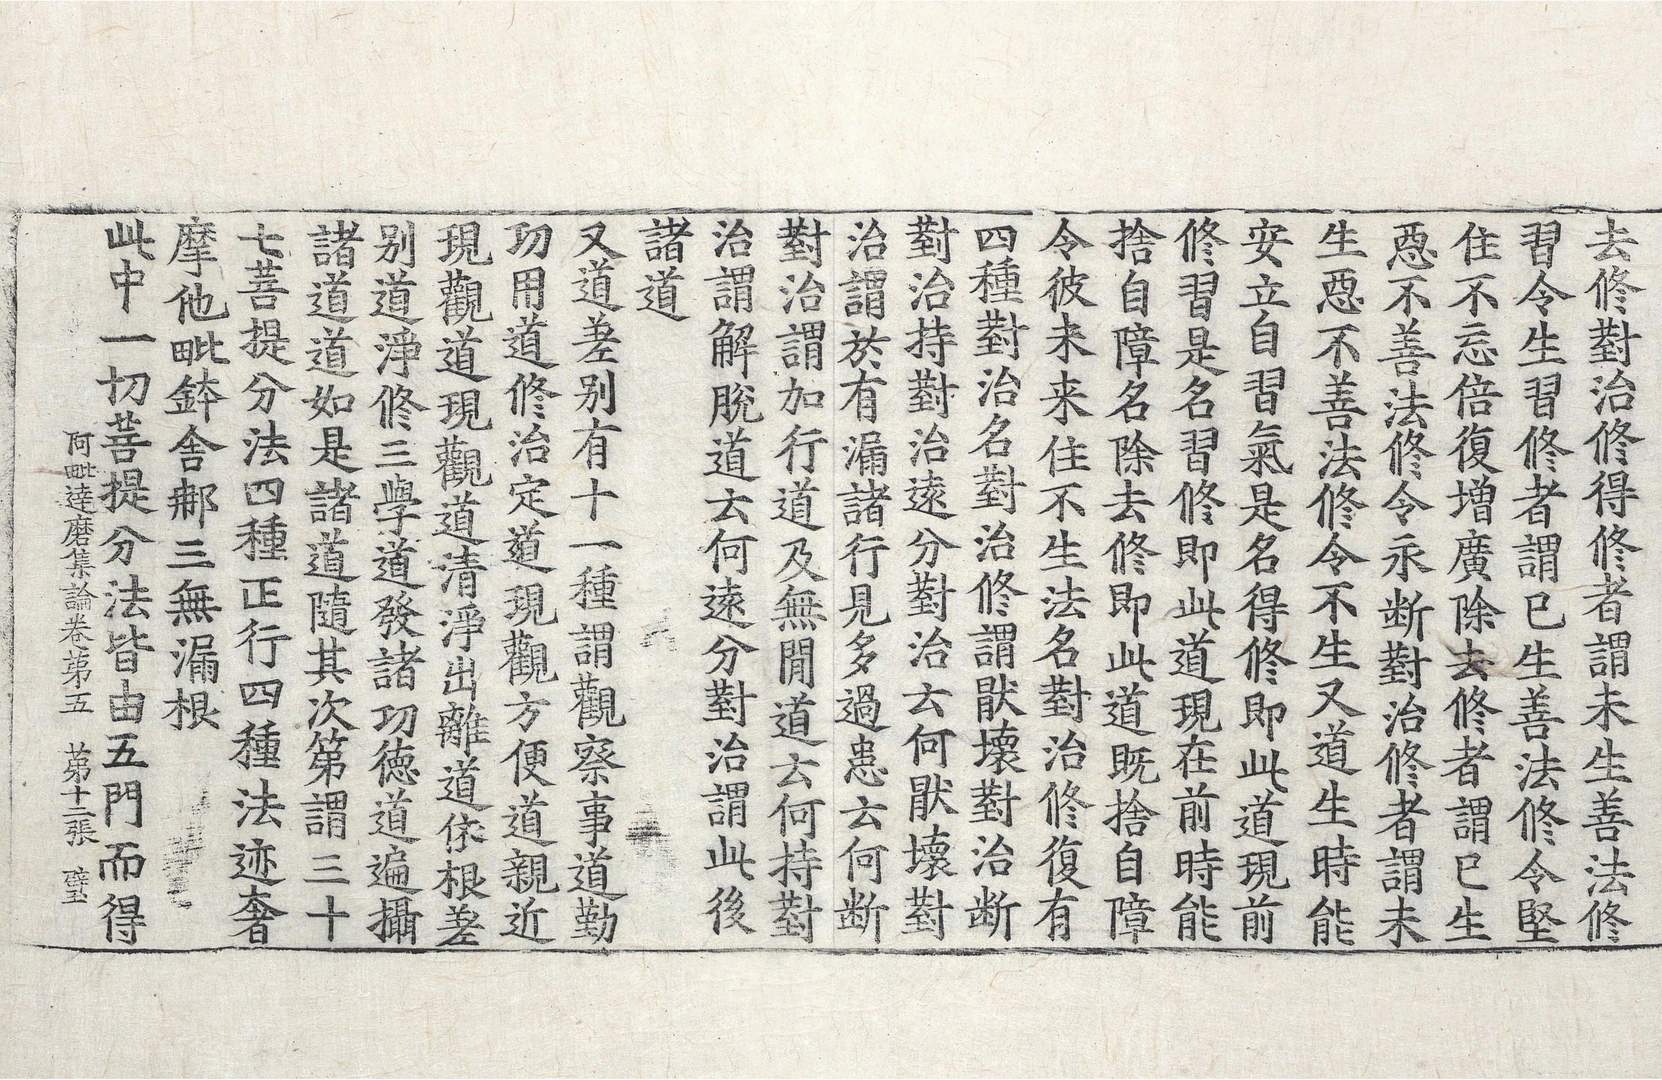 去修對治修得修者謂未生善法修
習令生習修者謂已生善法修令堅
住不忘倍復增廣除去修者謂已生
惡不善法修令永斷對治修者謂未
生惡不善法修令不生又道生時能
安立自習氣是名得修即此道現前
修習是名習修即此道現在前時能
捨自障名除去修即此道既捨自障
令彼未来住不生法名對治修復有
四種對治名對治修謂猒壞對治断
對治持對治遠分對治云何猒壞對
治謂於有漏諸行見多過患云何断
對治謂加行道及無閒道云何持對
治謂解脫道云何遠分對治謂此後
諸道
又道差別有十一種謂觀察事道勤
功用道修治定道現觀方便道親近
現觀道現觀道清淨出離道依根差
別道淨修三學道發諸功德道遍攝
諸道道如是諸道隨其次第謂三十
七菩提分法四種正行四種法迹奢
摩他毗鉢舍那三無漏根
此中一切菩提分法皆由五門而得
阿毗達磨集論卷第五 第十二張 璧